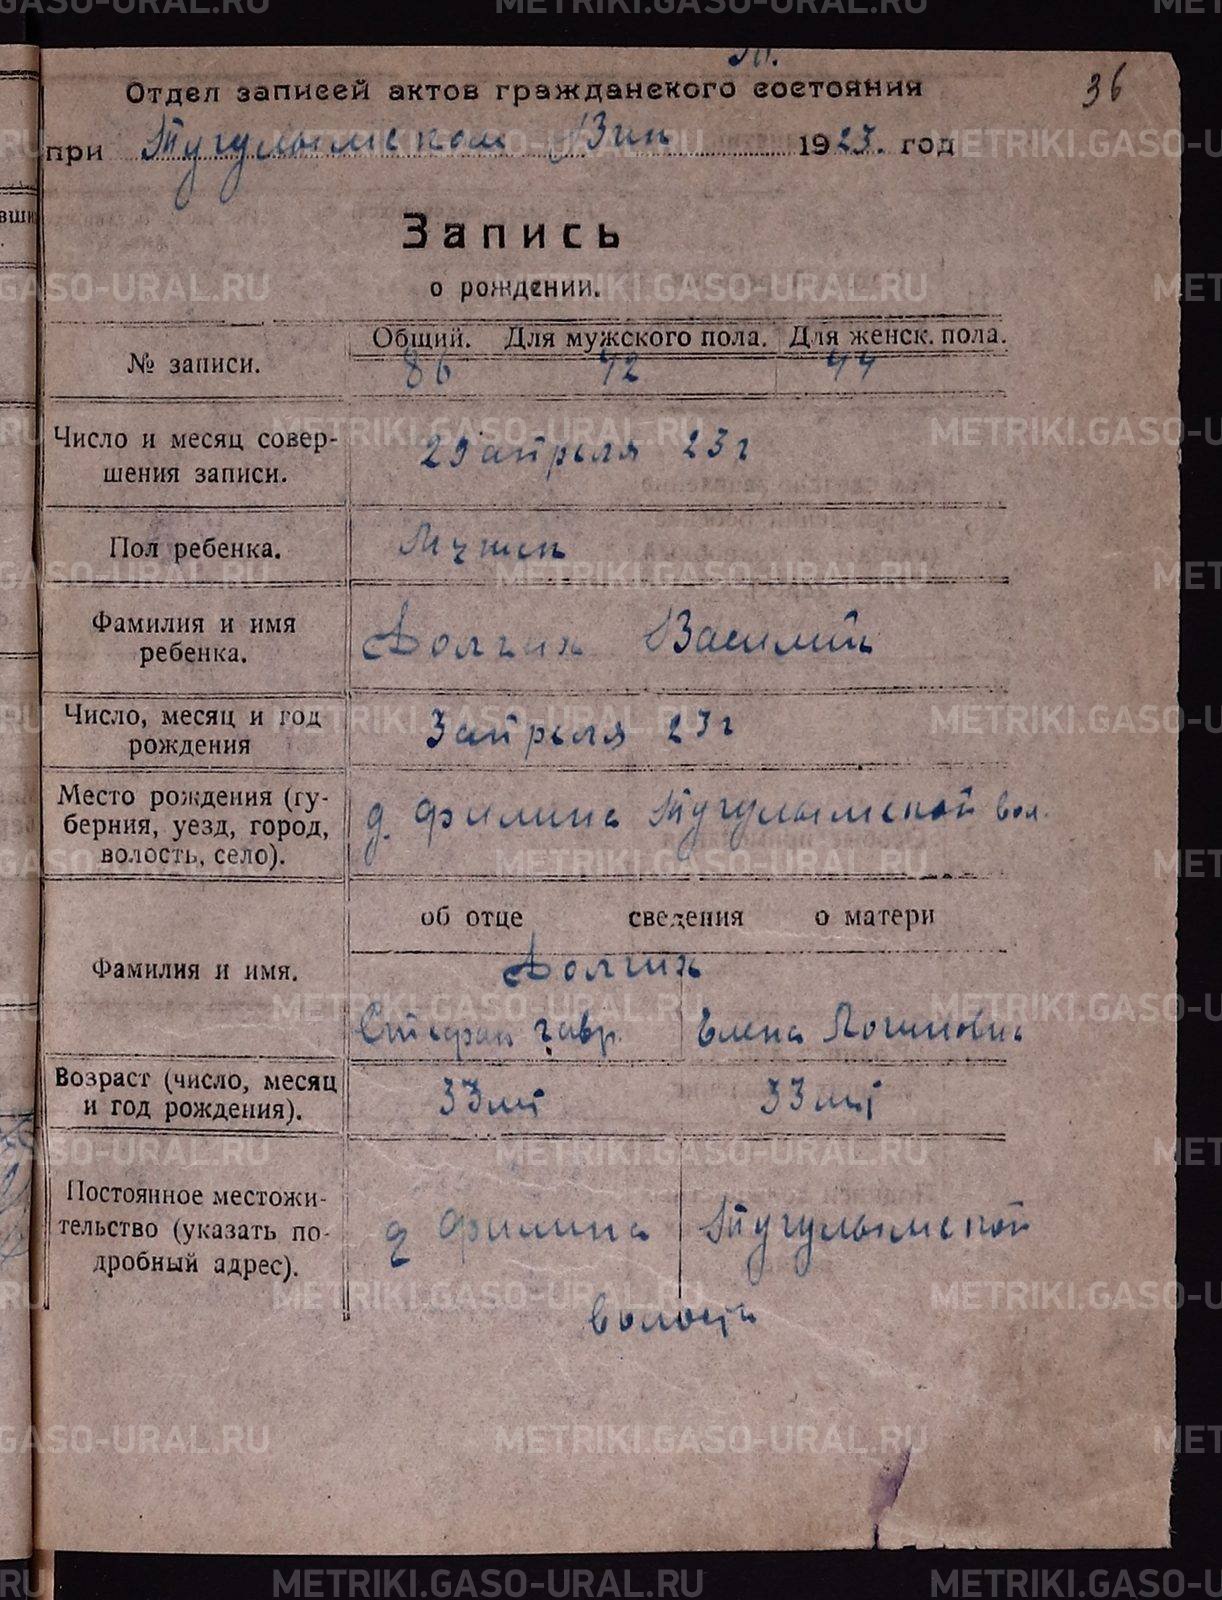 36
Отдел записей актов гражданского состояния
при Тугулымском Вик 1923. год
Запись
о рождении.
№ записи.
Общий. Для мужского пола. Для женск. пола.
86 42 44
Число и месяц совер-
шения записи.
29 апреля 23 г
Пол ребенка.
Мужск
Фамилия и имя
ребенка.
Долгих Василий
Число, месяц и год
рождения
3 апреля 23 г
Место рождения (гу-
берния, уезд, город,
волость, село).
д. Филина Тугулымской вол.
об отце сведения о матери
Фамилия и имя.
Долгих
Стефан Гавр. Елена Логиновна
Возраст (число, месяц
и год рождения).
33 лет 33 лет
Постоянное местожи-
тельство (указать по-
дробный адрес).
д Филина Тугулымской
волости
METRIKI.GASO-URAL.RU